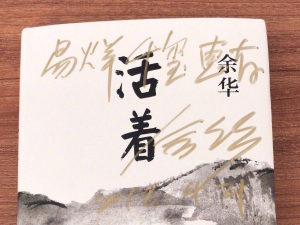 易烊千玺惠存
活着
余华
余华